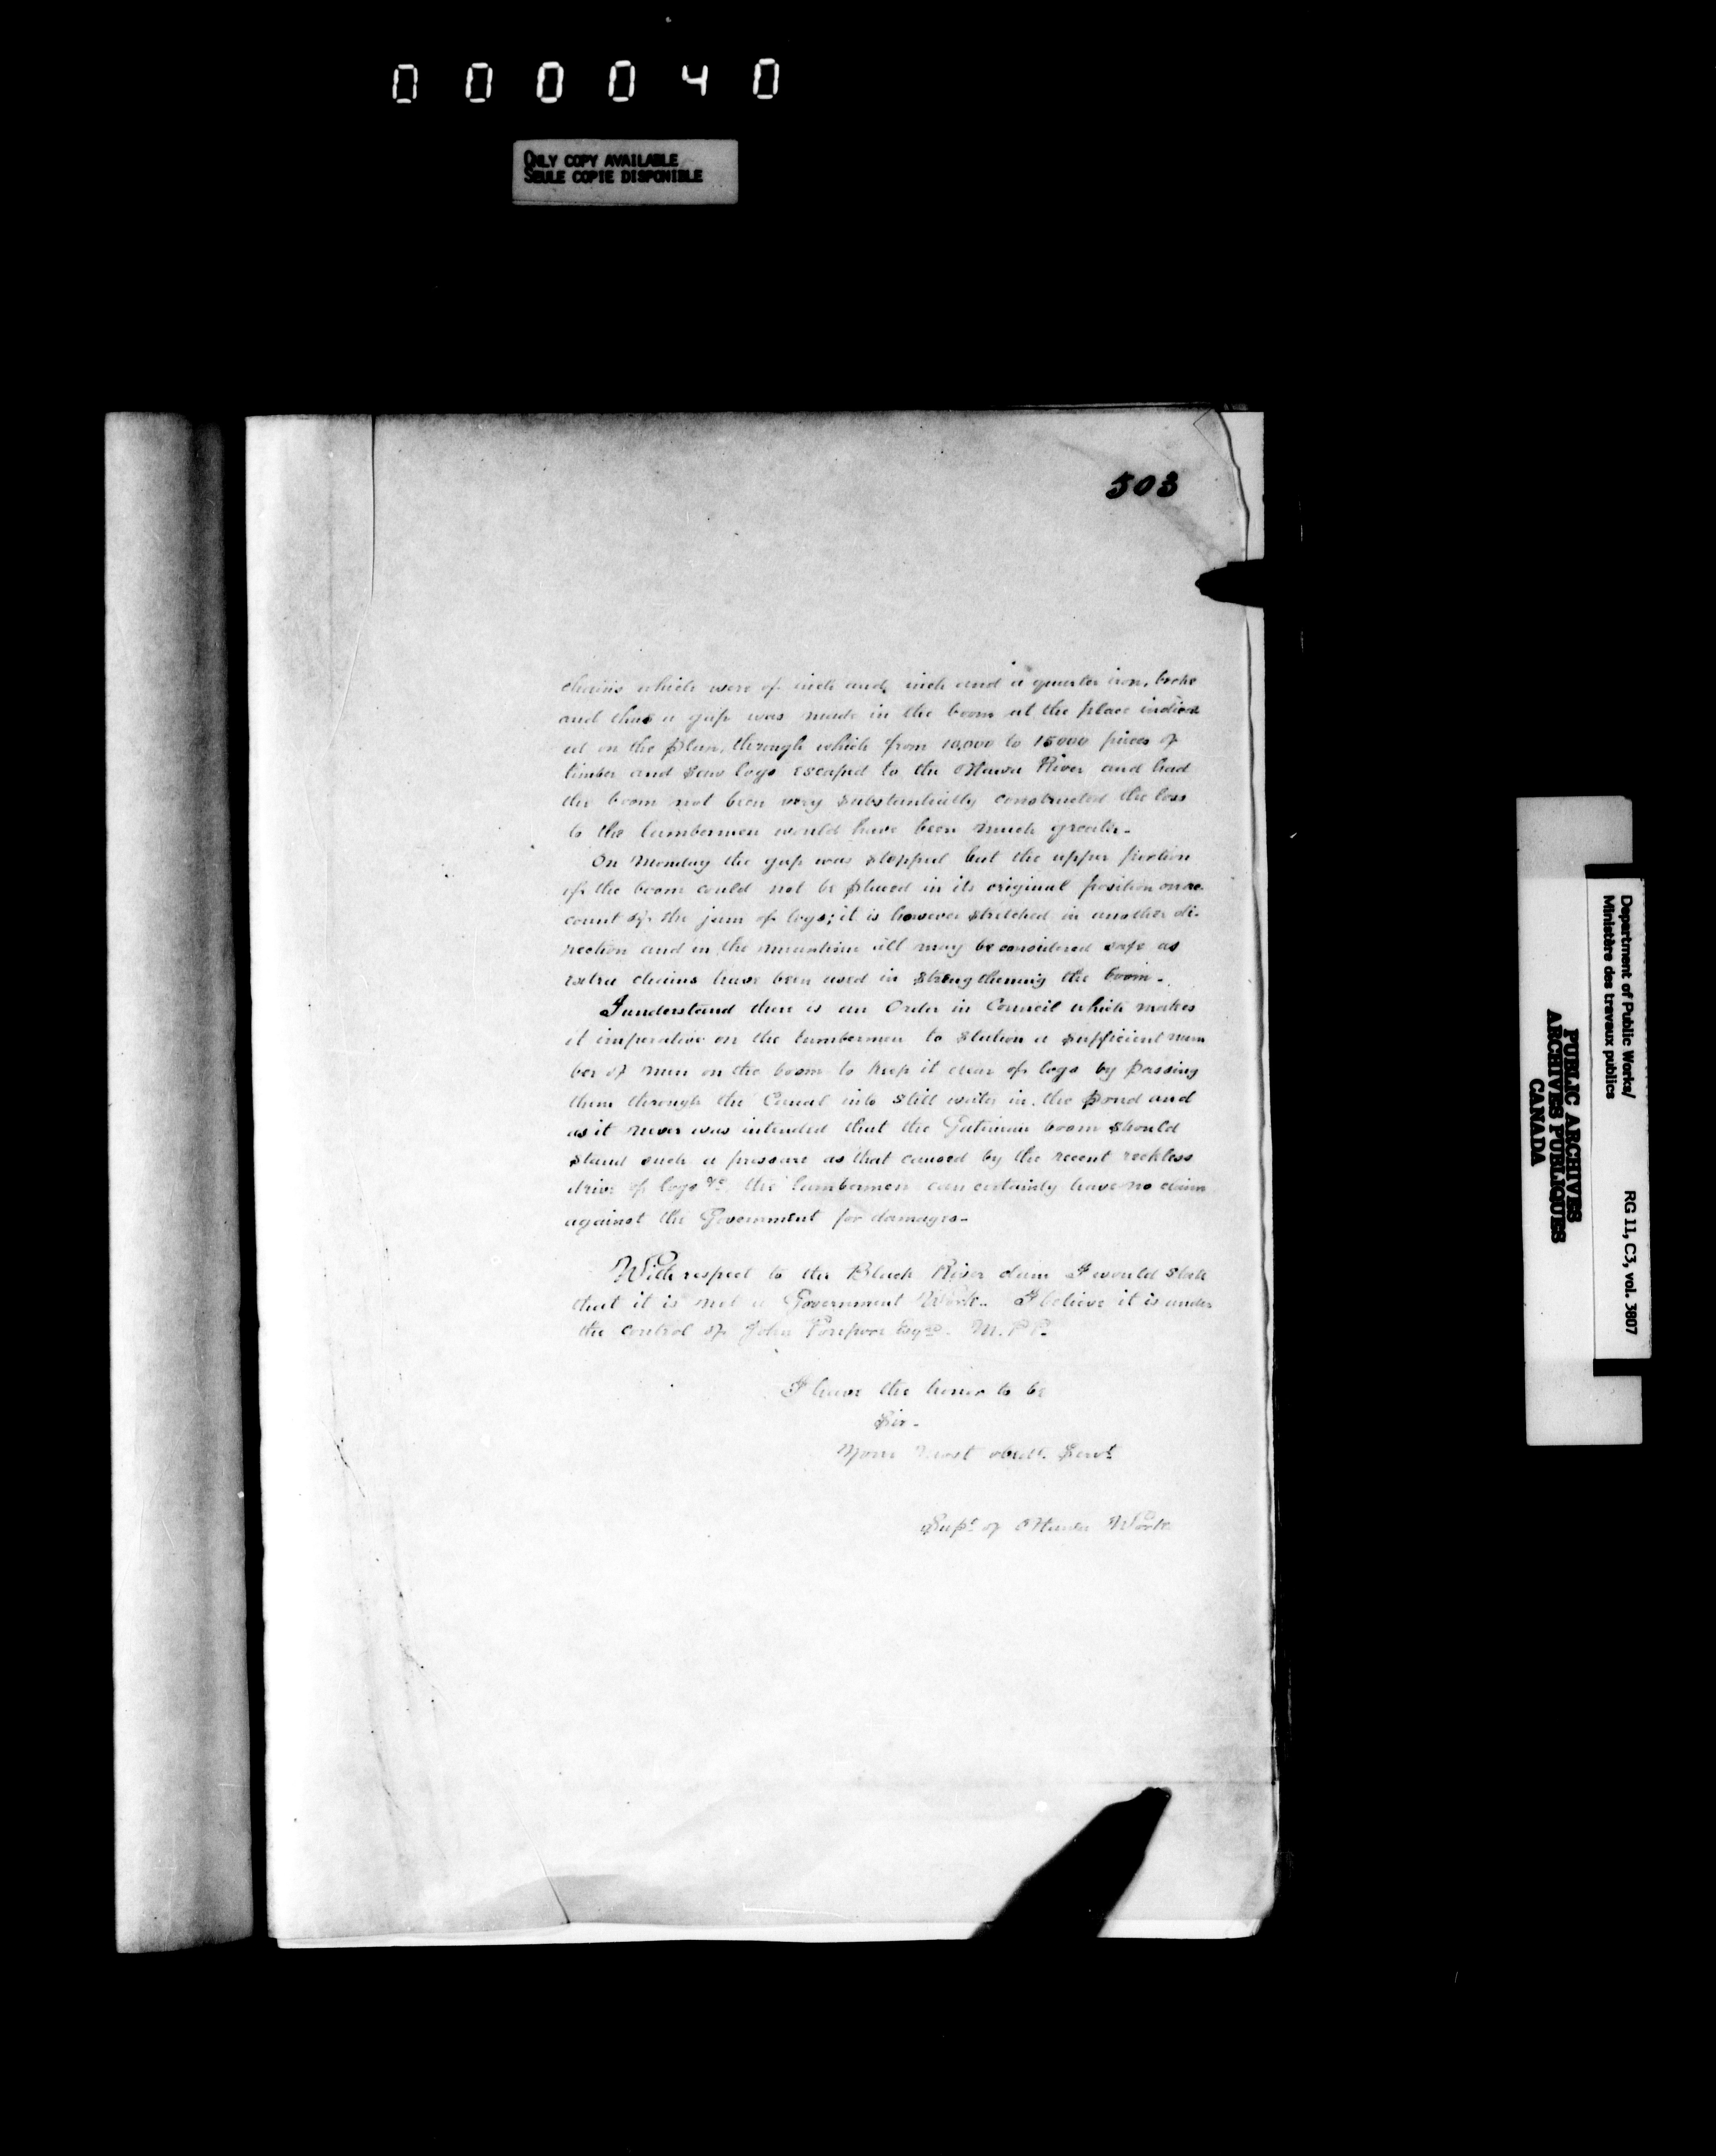 000040
ONLY COPY AVAILABLE
SEULE COPIE DISPONIBLE
503
chains which were of inch and inch and a quarter iron, broke
and thus a gap was made in the boom at the place indicat
ed on the Plan, through which from 10,000 to 15000 pieces of
timber and Saw logs escaped to the Ottawa River and had
the boom not been very substantially constructed the loss
to the lumbermen would have been much greater-
On Monday the gap was stopped but the upper portion
of the boom could not be placed in its original position on ac-
count of the jam of logs; it is however stretched in another di-
rection and in the meantime all may be considered safe as
extra chains have been used in strengthening the boom-
I understand there is an Order in Council which makes
it imperative on the Lumbermen to station a sufficient num
ber of men on the boom to keep it clear of logs by passing
them through the Canal into still water in the pond and
as it never was intended that the Gatineau boom should
stand such a pressure as that caused by the recent reckless
drive of logs &c the lumbermen can certainly have no claim
against the Government for damages-
With respect to the Black River claim I would state
that it is not a Government Work. I believe it is under
the control of John Poupore Esqre. M.P.P.
I have the honor to be
Sir-
Your most obedt. Servt
Supt of Ottawa Works
Department of Public Works/
Ministère des travaux publics
RG 11, C3, vol. 3807
PUBLIC ARCHIVES
ARCHIVES PUBLIQUES
CANADA